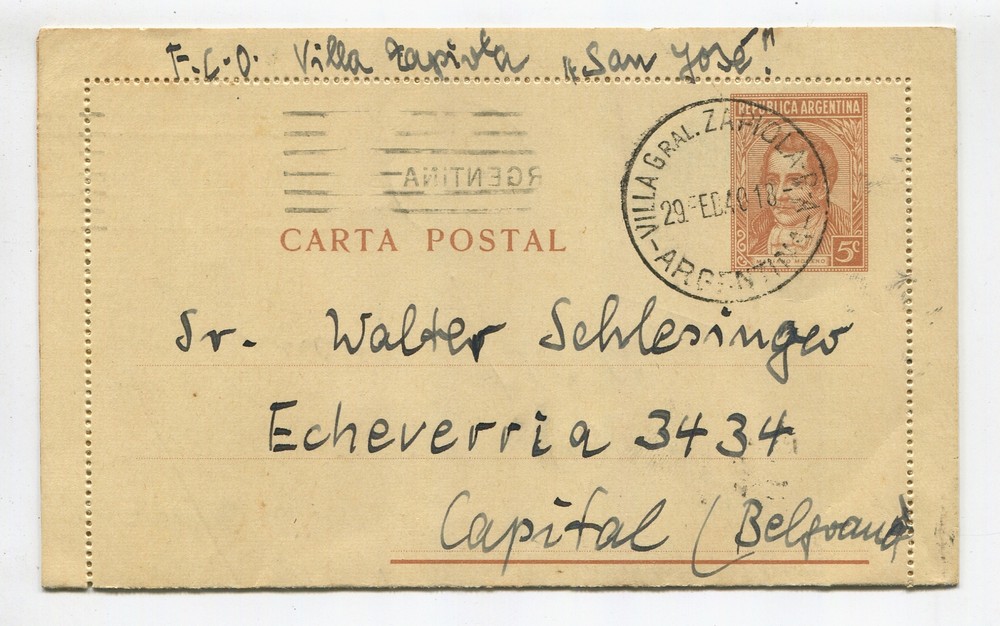 F.C.O. Villa Zapiola „San José."
REPUBLICA ARGENTINA
VILLA GRAL. ZAPIOLA
29 FEB 40 18
ARGENTINA
MARIANO MORENO
5c
ARGENTINA
CARTA POSTAL
Sr. Walter Schlesinger
Echeverria 3434
Capital (Belgrano)